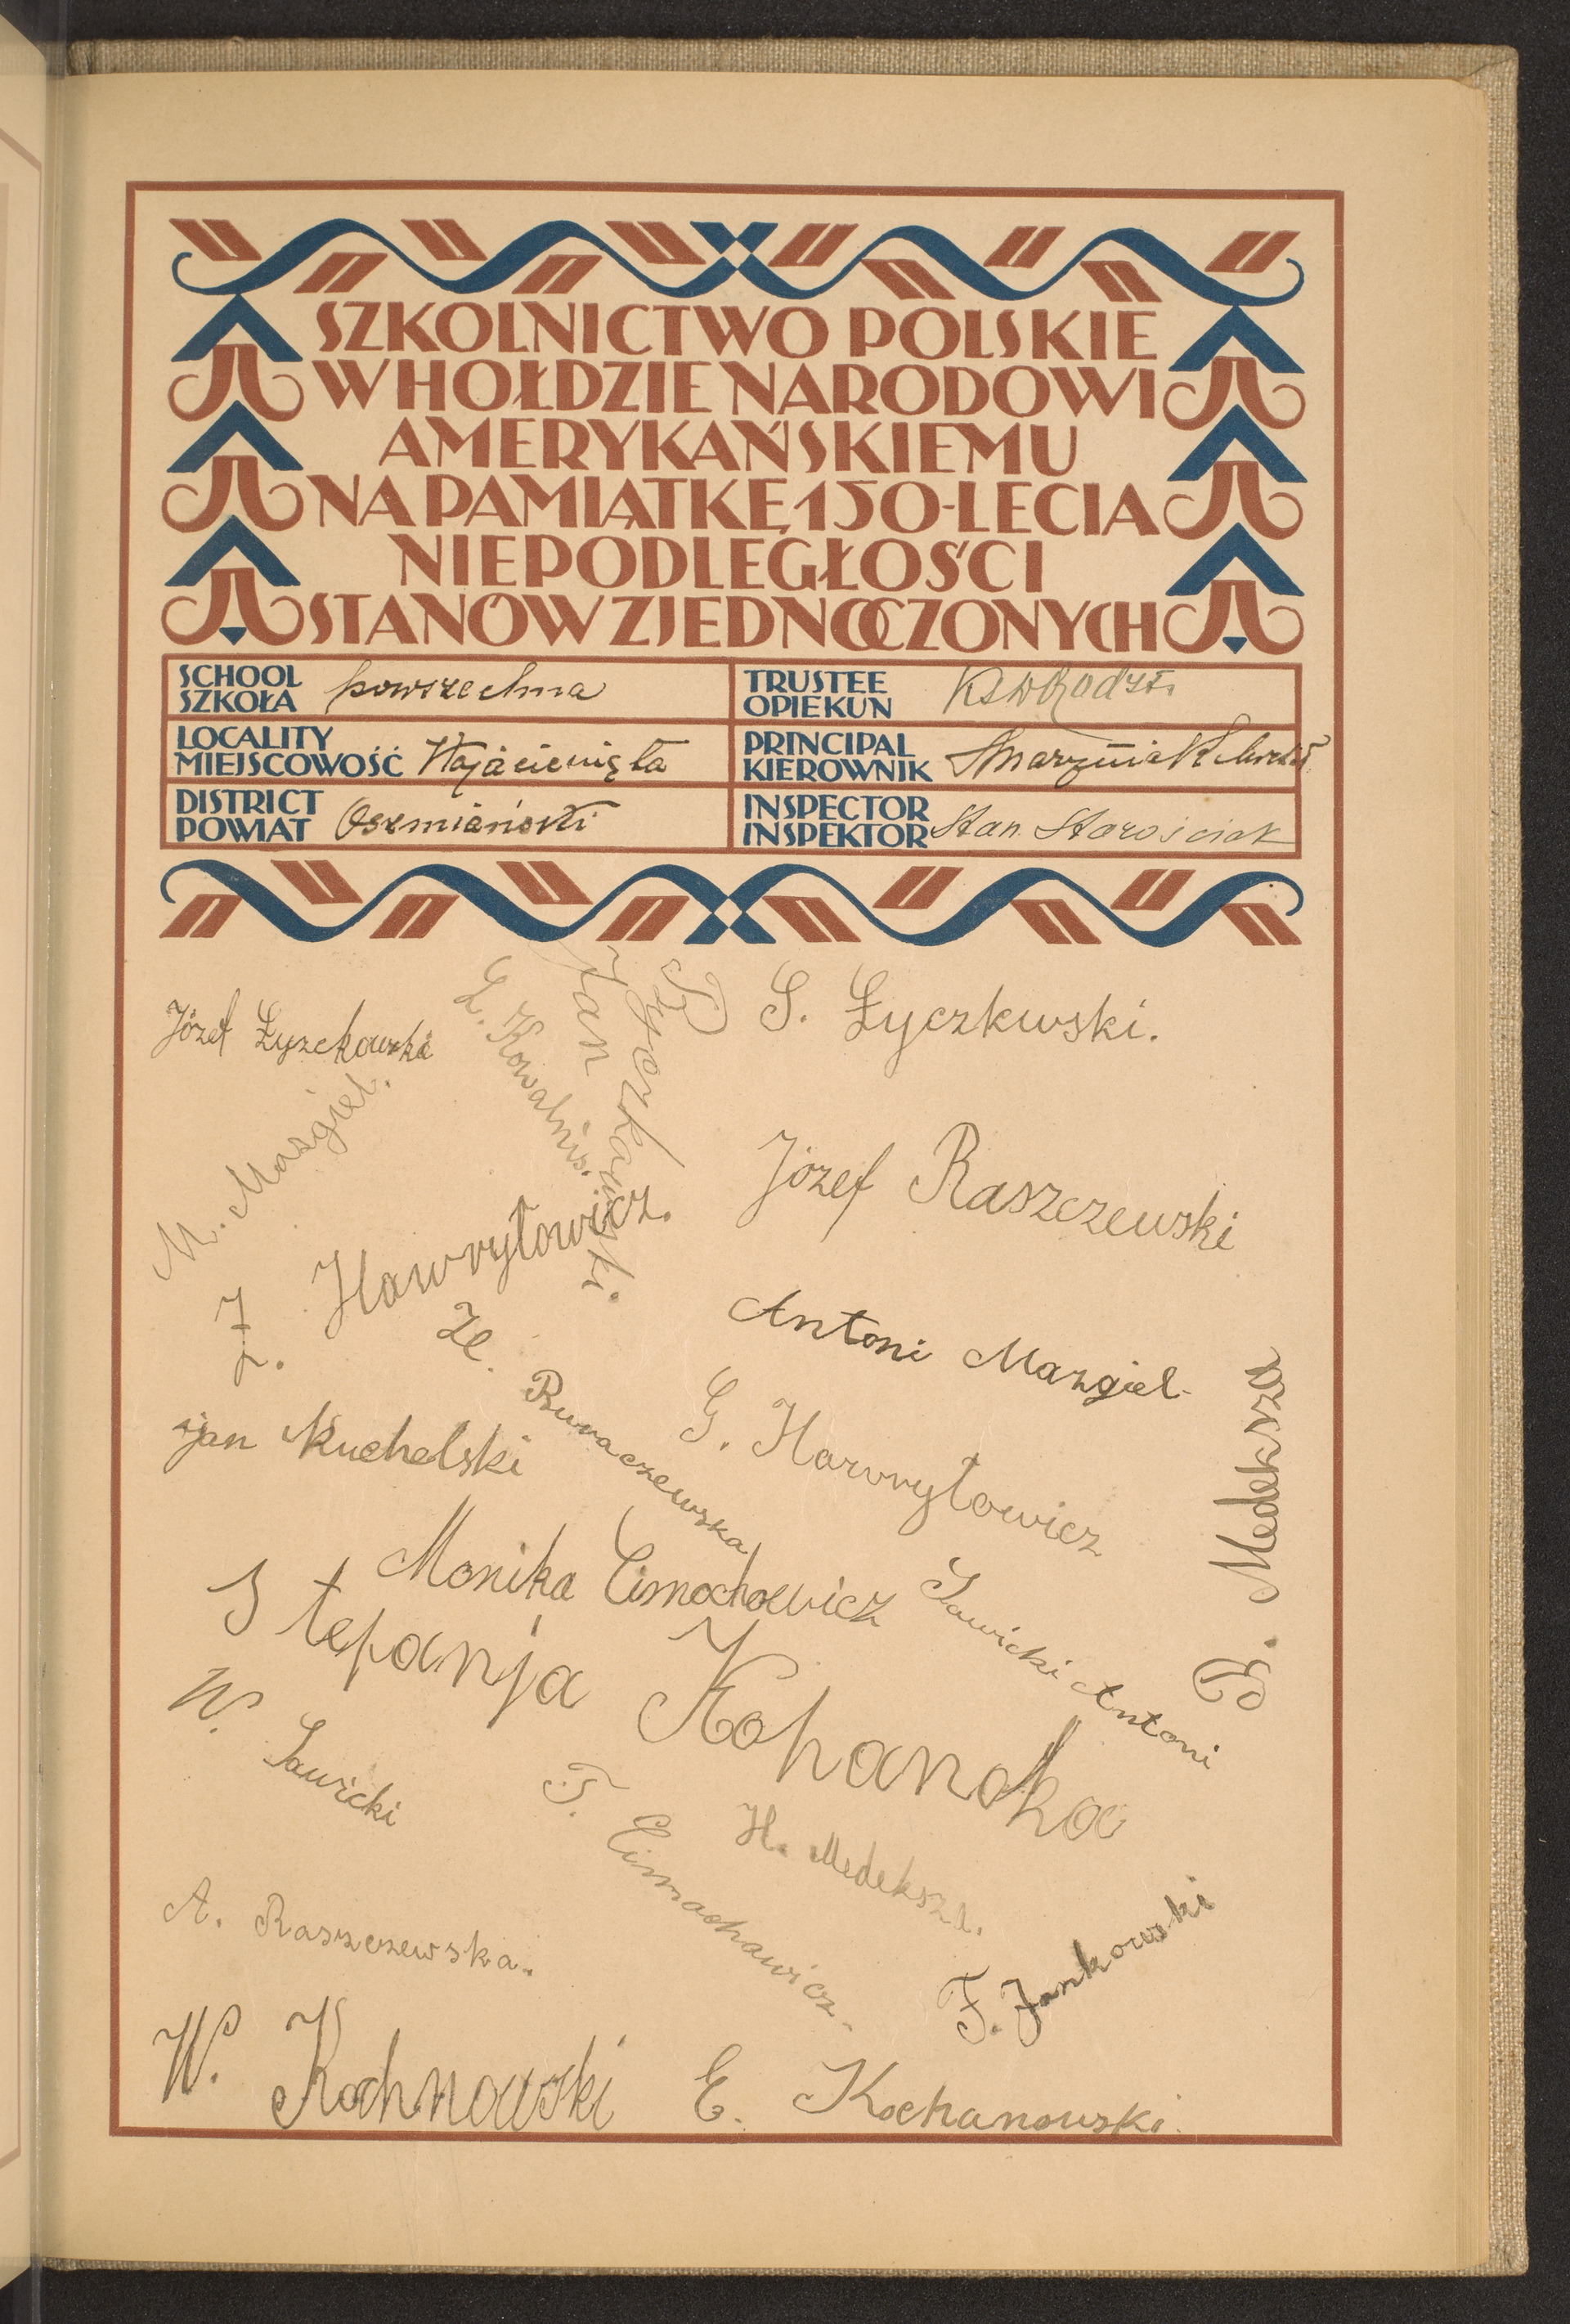 SZKOLNICTWO POLSKIE
W HOŁDZIE NARODOWI
AMERYKAŃSKIEMU
NA PAMIĄTKĘ 150-LECIA
NIEPODLEGŁOŚCI
STANÓW ZJEDNOCZONYCH
SCHOOL
SZKOŁA powszechna
TRUSTEE
OPIEKUN
LOCALITY
MIEJSCOWOŚĆ
PRINCIPAL
KIEROWNIK
DISTRICT
POWIAT Oszmiański
INSPECTOR
INSPEKTOR Stan. Starościak
Józef Łyzckowski
L. Kowalnis.
Jan
S. Łyczkwski.
M. Mazgiel.
Józef Raszczewski
Z. Hawryłowicz.
Antoni Mazgiel-
He.
G. Hawryłowicz
jan Kuchelski
B. Medeksza
Monika Cimochowicz
Sawicki Antoni
Stepanja Kohanska
W. Sawicki
T. Cimachawicz.
H. Medeksza.
A. Raszczewska.
F. Jankowski
W. Kochnowski
E. Kochanowski.